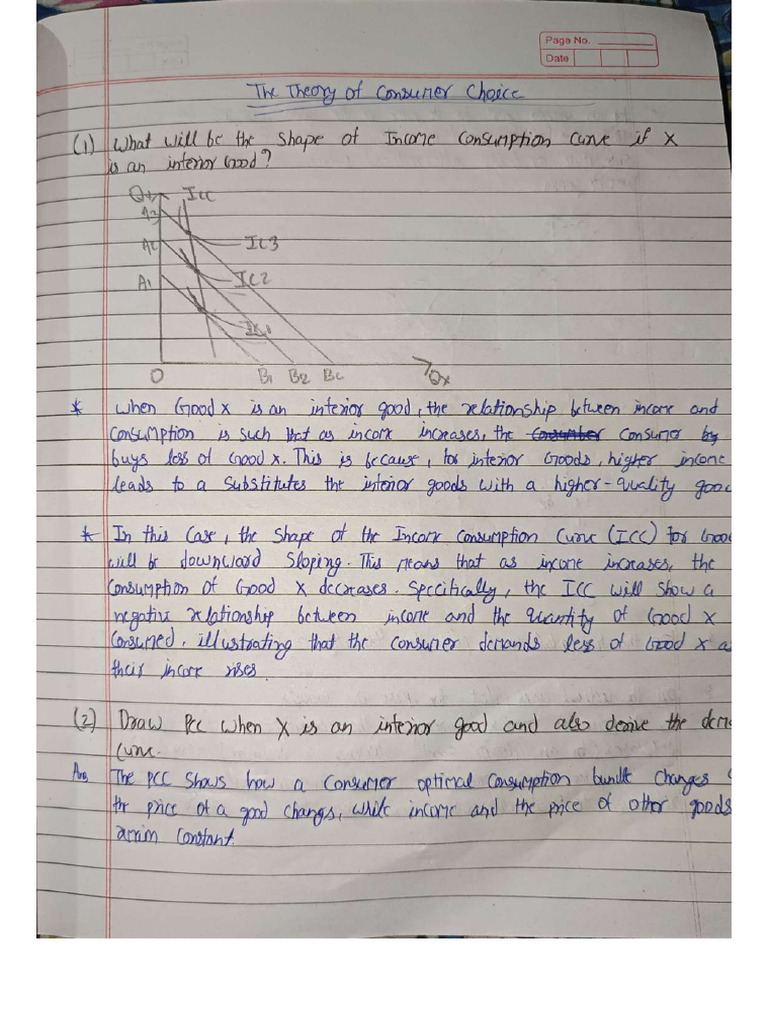 Page No.
Date
The Theory of Consumer Choice
(1) What will be the shape of Income Consumption Curve if X
is an inferior Good?
Qy ICC
A3
A2 IC3
A1 IC2
IC1
O B1 B2 Bc Qx
* When Good X is an inferior good, the relationship between income and
Consumption is such that as income increases, the Consumer
buys less of Good X. This is because, for inferior Goods, higher income
leads to a substitutes the inferior goods with a higher-quality good
* In this Case, the Shape of the Income Consumption Curve (ICC) for Good
will be downward Sloping. This means that as income increases, the
Consumption of Good X decreases. Specifically, the ICC will show a
negative relationship between income and the quantity of Good X
Consumed, illustrating that the consumer demands less of Good X a
their income rises.
(2) Draw PCC when X is an inferior good and also derive the dem
Curve.
Ans The PCC shows how a Consumer optimal Consumption bundle changes
the price of a good changs, while income and the price of other goods
Constant.